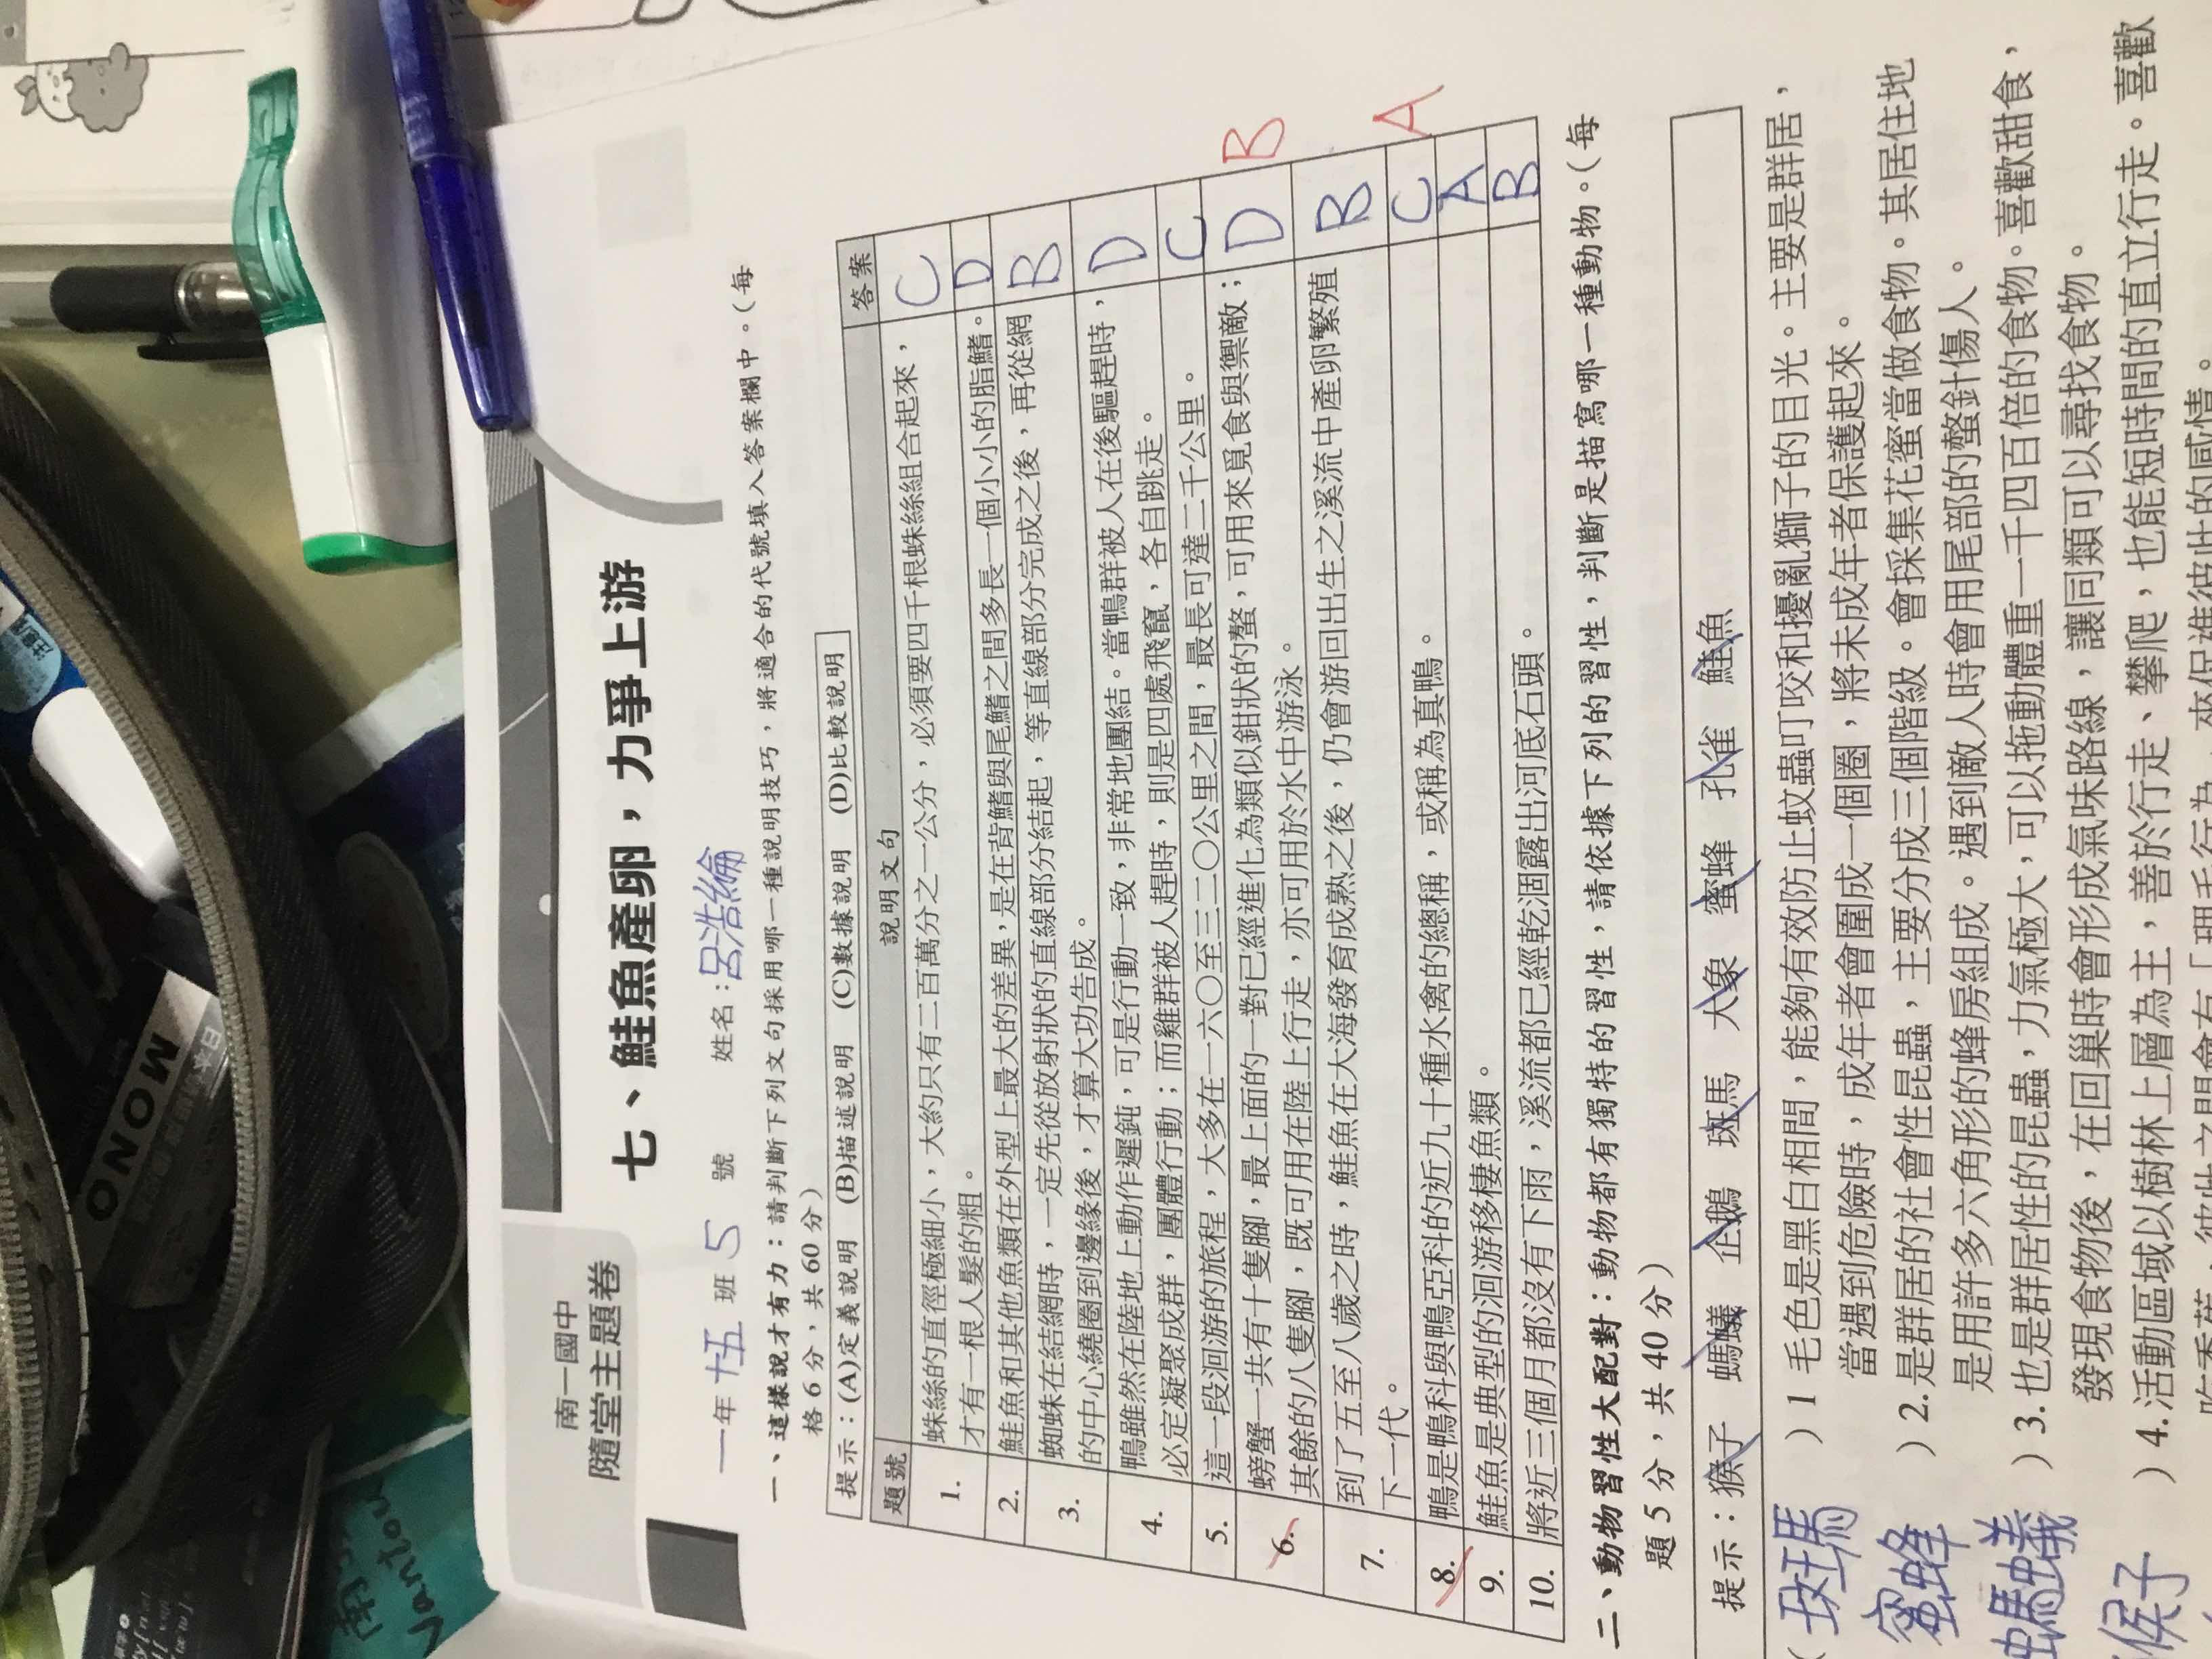 南一國中
隨堂主題卷
七、鮭魚產卵，力爭上游
一年十五班 5 號 姓名：呂浩綸
一、這樣說才有力：請判斷下列文句採用哪一種說明技巧，將適合的代號填入答案欄中。（每
格 6 分，共 60 分）
提示：(A)定義說明 (B)描述說明 (C)數據說明 (D)比較說明
題號 說明文句 答案
1. 蛛絲的直徑極細小，大約只有二百萬分之一公分，必須要四千根蛛絲組合起來， C
才有一根人髮的粗。
2. 鮭魚和其他魚類在外型上最大的差異，是在背鰭與尾鰭之間多長一個小小的脂鰭。 D
3. 蜘蛛在結網時，一定先從放射狀的直線部分結起，等直線部分完成之後，再從網 B
的中心繞圈到邊緣後，才算大功告成。
4. 鴨雖然在陸地上動作遲鈍，可是行動一致，非常地團結。當鴨群被人在後驅趕時， D
必定凝聚成群，團體行動；而雞群被人趕時，則是四處飛竄，各自跳走。
5. 這一段洄游的旅程，大多在一六○至三二○公里之間，最長可達二千公里。 C
6. 螃蟹一共有十隻腳，最上面的一對已經進化為類似鉗狀的螯，可用來覓食與禦敵； D B
其餘的八隻腳，既可用在陸上行走，亦可用於水中游泳。
7. 到了五至八歲之時，鮭魚在大海發育成熟之後，仍會游回出生之溪流中產卵繁殖 B
下一代。
8. 鴨是鴨科與鴨亞科的近九十種水禽的總稱，或稱為真鴨。 C A
9. 鮭魚是典型的洄游移棲魚類。 A
10. 將近三個月都沒有下雨，溪流都已經乾涸露出河底石頭。 B
二、動物習性大配對：動物都有獨特的習性，請依據下列的習性，判斷是描寫哪一種動物。（每
題 5 分，共 40 分）
提示：猴子 螞蟻 企鵝 斑馬 大象 蜜蜂 孔雀 鮭魚
（斑馬 ）1 毛色是黑白相間，能夠有效防止蚊蟲叮咬和擾亂獅子的目光。主要是群居，
當遇到危險時，成年者會圍成一個圈，將未成年者保護起來。
蜜蜂 ）2. 是群居的社會性昆蟲，主要分成三個階級。會採集花蜜當做食物。其居住地
是用許多六角形的蜂房組成。遇到敵人時會用尾部的螫針傷人。
螞蟻 ）3. 也是群居性的昆蟲，力氣極大，可以拖動體重一千四百倍的食物。喜歡甜食，
發現食物後，在回巢時會形成氣味路線，讓同類可以尋找食物。
猴子 ）4. 活動區域以樹林上層為主，善於行走、攀爬，也能短時間的直立行走。喜歡
MONO